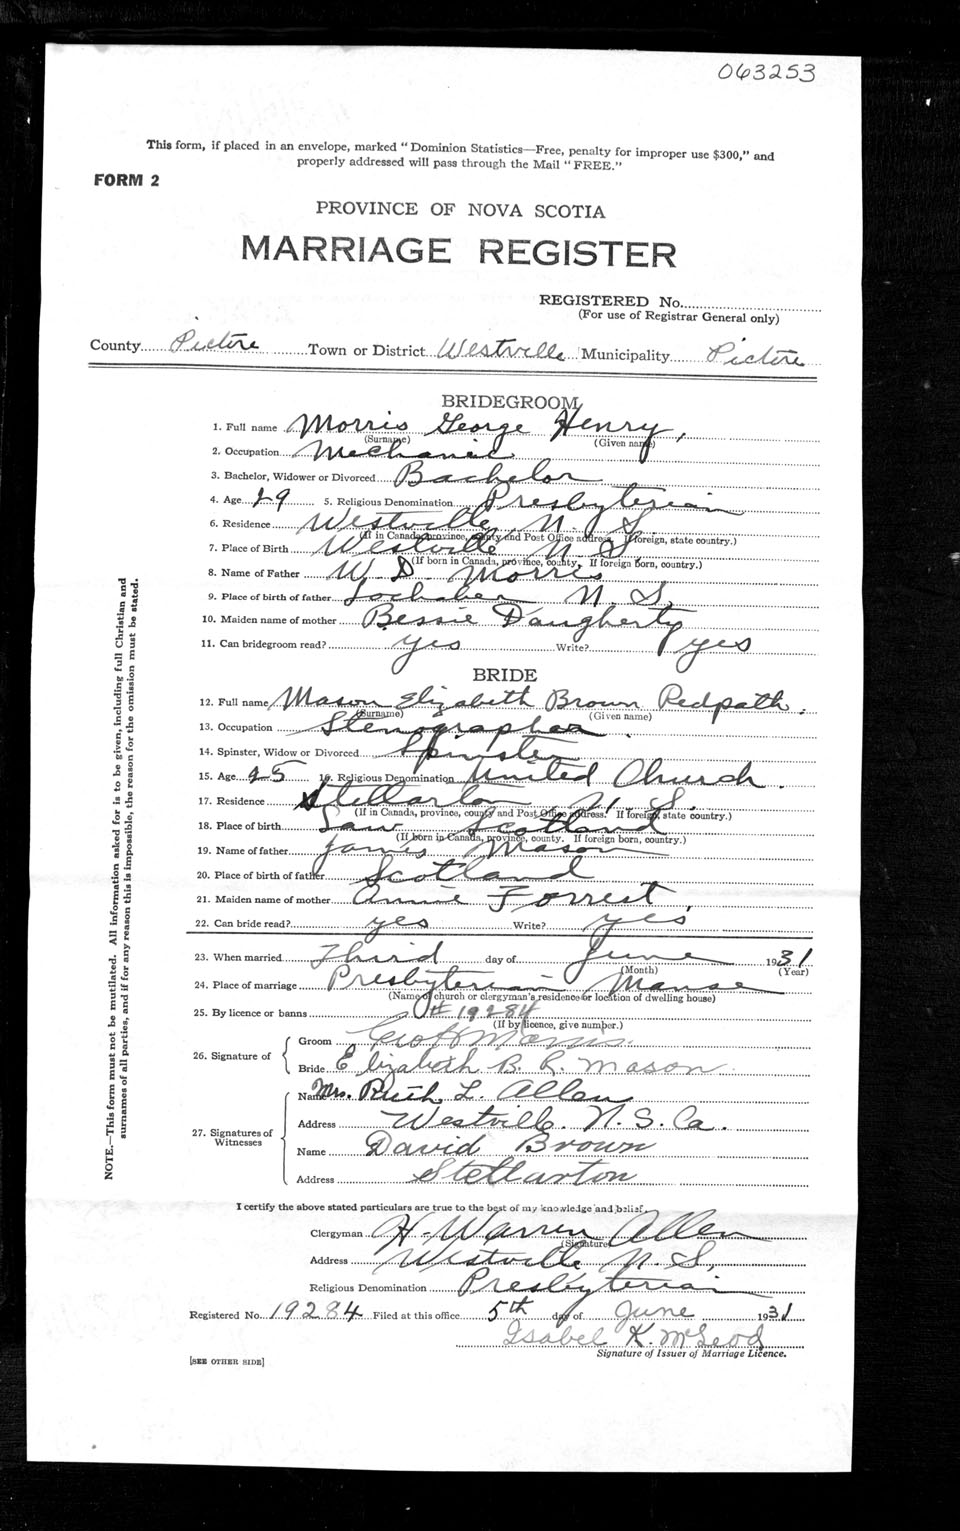 063253
This form, if placed in an envelope, marked "Dominion Statistics—Free, penalty for improper use $300," and
properly addressed will pass through the Mail "FREE."
FORM 2
PROVINCE OF NOVA SCOTIA
MARRIAGE REGISTER
REGISTERED No.
(For use of Registrar General only)
County Pictou Town or District Westville Municipality Pictou
BRIDEGROOM
1. Full name Morris George Henry,
(Surname) (Given name)
2. Occupation Mechanic
3. Bachelor, Widower or Divorced Bachelor
4. Age 29 5. Religious Denomination Presbyterian
6. Residence Westville N. S.
(If in Canada, province, county and Post Office address. If foreign, state country.)
7. Place of Birth Westville N. S.
(If born in Canada, province, county. If foreign born, country.)
8. Name of Father W. D. Morris
9. Place of birth of father Lochaber N. S.
10. Maiden name of mother Bessie Daugherty
11. Can bridegroom read? yes Write? yes
BRIDE
12. Full name Mason Elizabeth Brown Redpath.
(Surname) (Given name)
13. Occupation Stenographer.
14. Spinster, Widow or Divorced Spinster
15. Age 25 16. Religious Denomination United Church.
17. Residence Stellarton N. S.
(If in Canada, province, county and Post Office address. If foreign, state country.)
18. Place of birth Scotland
(If born in Canada, province, county. If foreign born, country.)
19. Name of father James Mason
20. Place of birth of father Scotland
21. Maiden name of mother Annie Forrest,
22. Can bride read? yes Write? yes
23. When married Third day of June 1931
(Month) (Year)
24. Place of marriage Presbyterian Manse
(Name of church or clergyman's residence or location of dwelling house)
25. By licence or banns # 19284
(If by licence, give number.)
26. Signature of
Groom Geo H Morris.
Bride Elizabeth B. R. Mason.
27. Signatures of Witnesses
Name Mrs. Ruth L. Allen
Address Westville. N. S. Ca.
Name David Brown
Address Stellarton
I certify the above stated particulars are true to the best of my knowledge and belief.
Clergyman H. Warren Allen
(Signature)
Address Westville N. S.
Religious Denomination Presbyterian
Registered No. 19284 Filed at this office 5th day of June 1931
Isabel K. McLeod
Signature of Issuer of Marriage Licence.
[SEE OTHER SIDE]
NOTE.—This form must not be mutilated. All information asked for is to be given, including full Christian and
surnames of all parties, and if for any reason this is impossible, the reason for the omission must be stated.